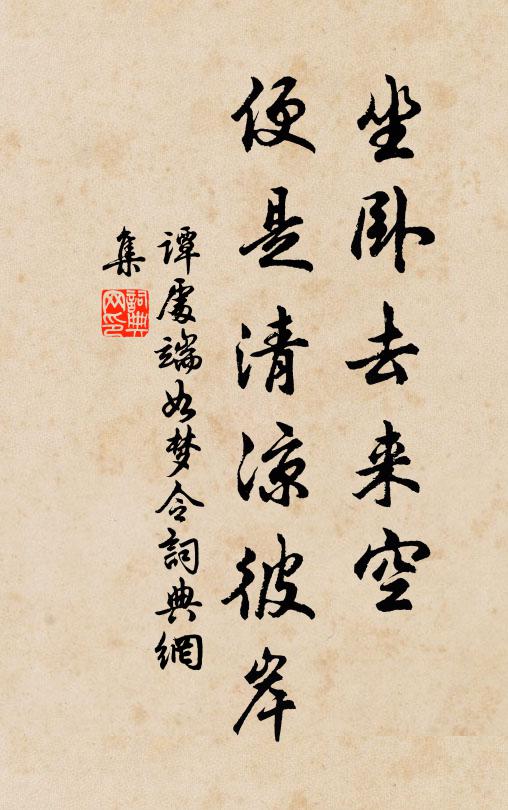 坐卧去来空
便是清凉彼岸
谭處端如梦令詞典網
集
詞典
网印